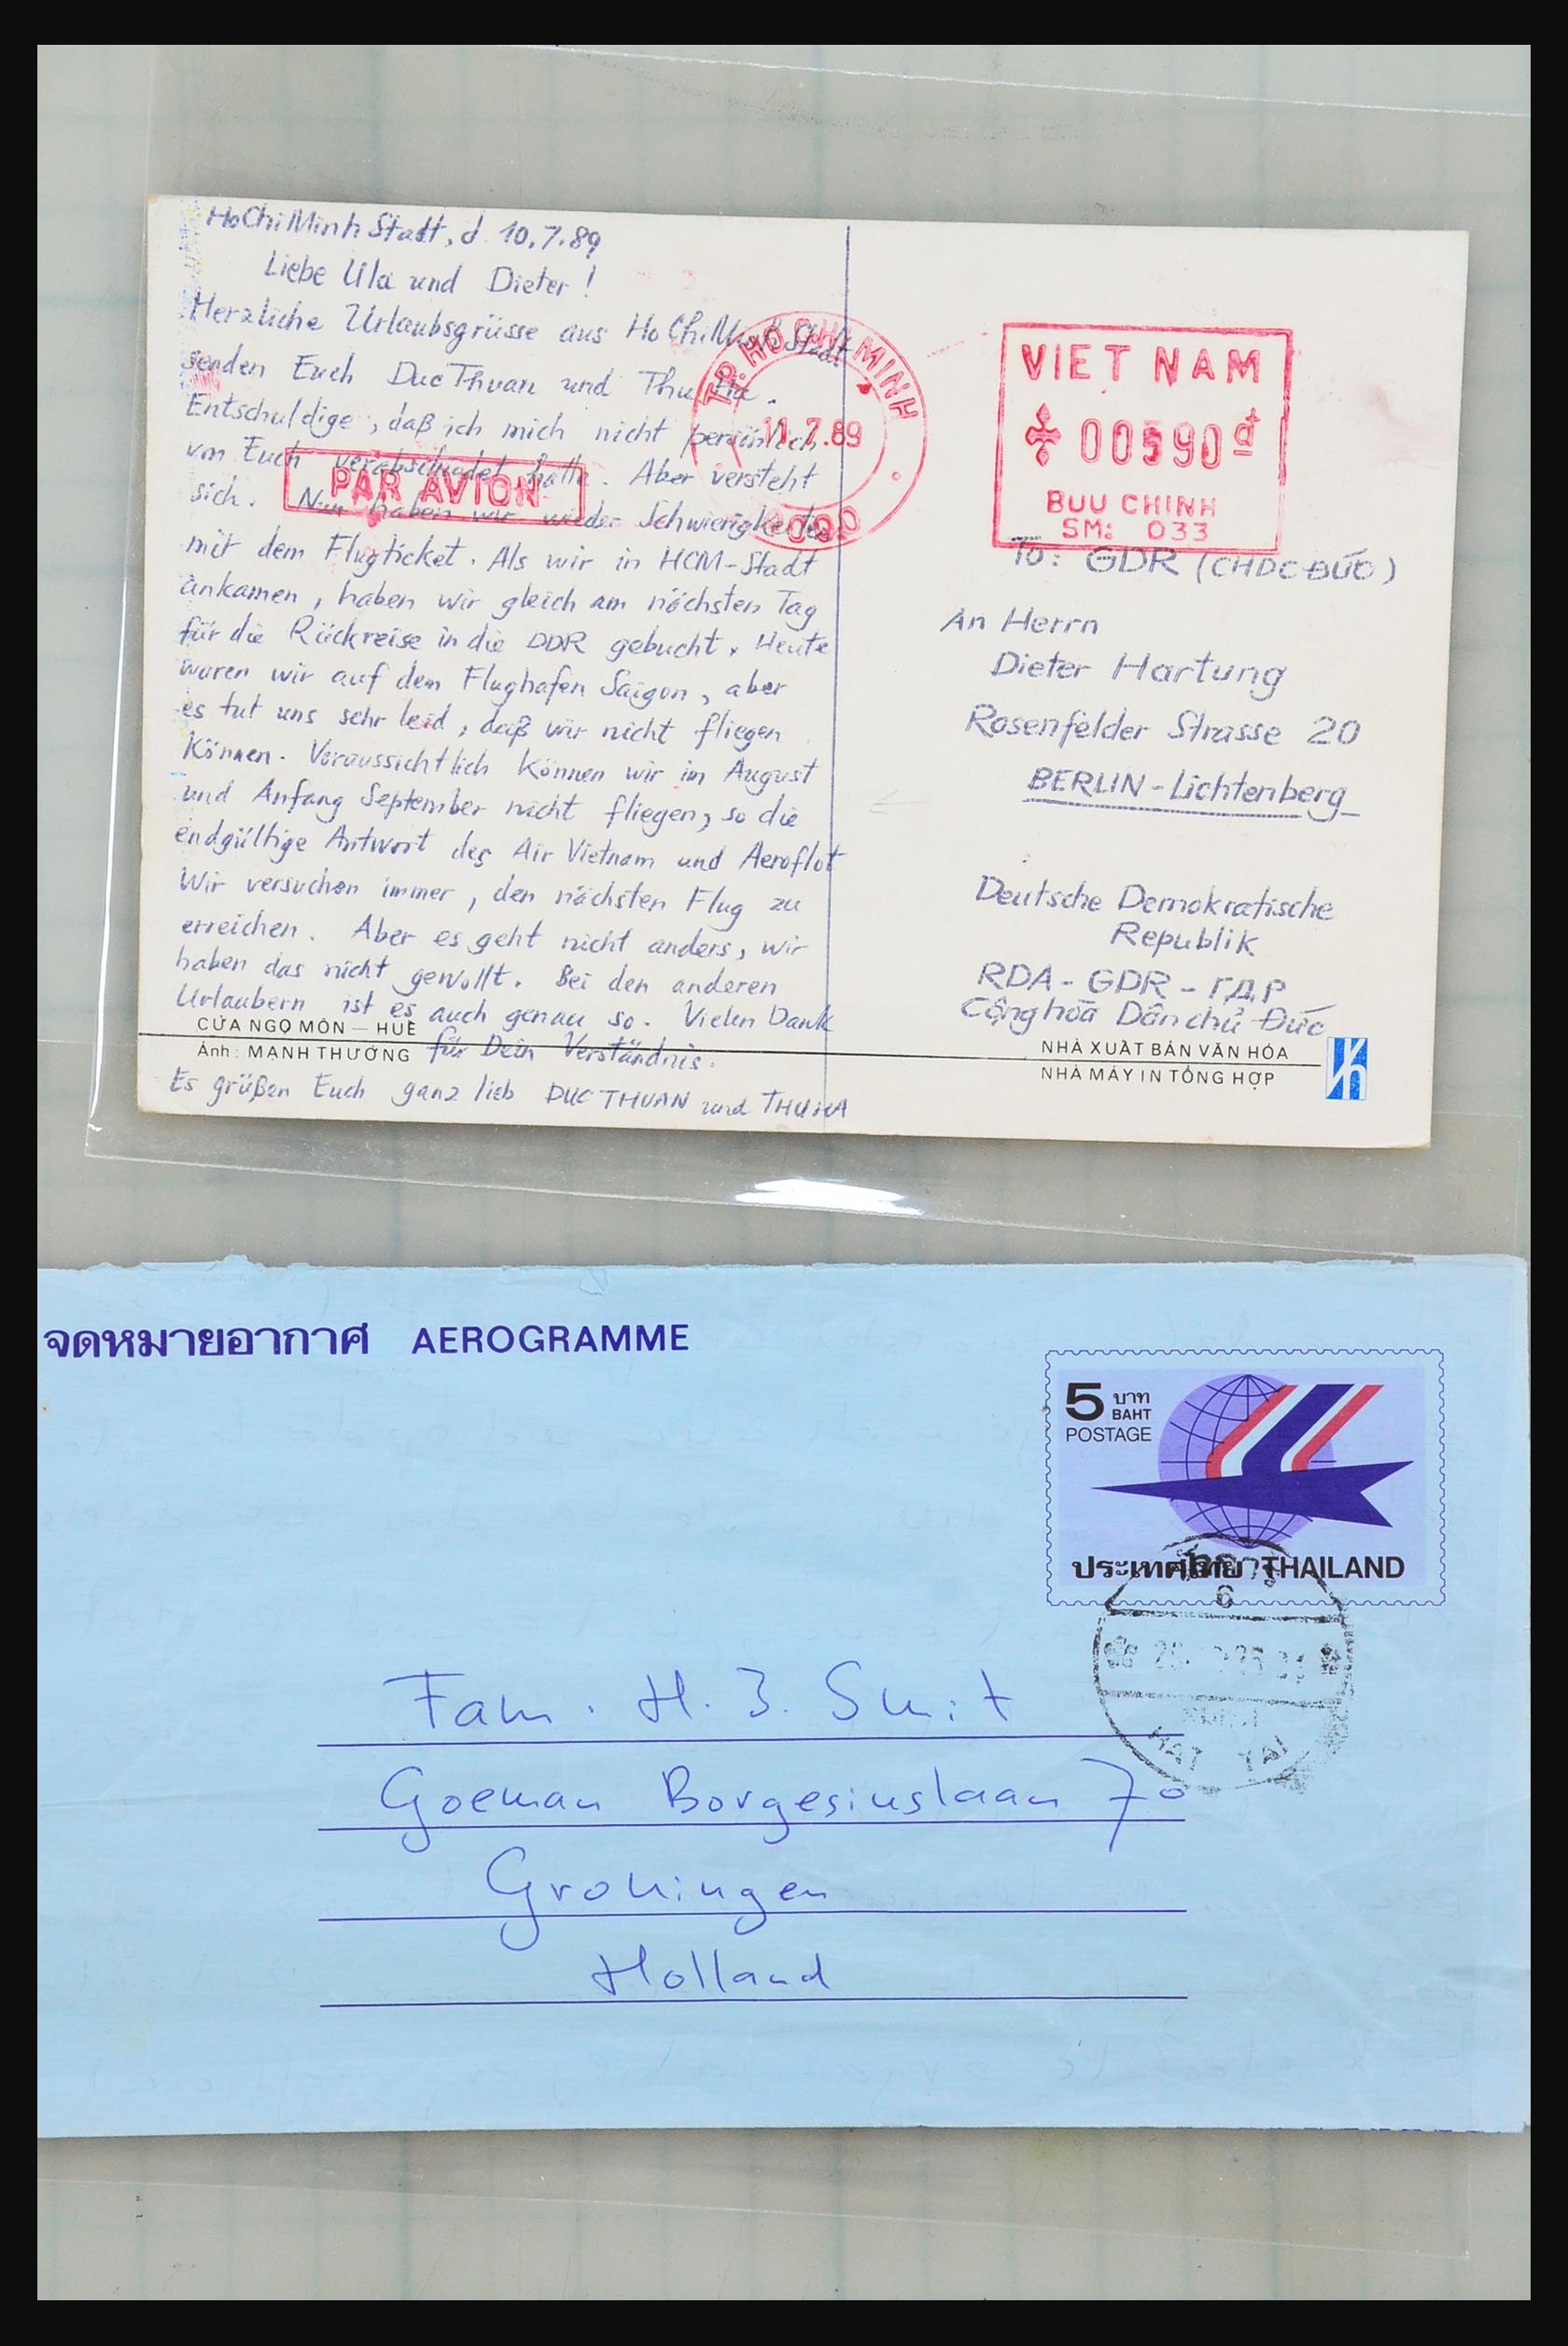 HoChiMinh Stadt, d. 10.7.89
Liebe Ula und Dieter!
Herzliche Urlaubsgrüsse aus Ho Chi Minh Stadt
senden Euch Duc Thuan und Thu Ha.
Entschuldige, daß ich mich nicht persönlich
von Euch verabschiedet hatte. Aber versteht
sich. Nun haben wir wieder Schwierigkeiten
mit dem Flugticket. Als wir in HCM-Stadt
ankamen, haben wir gleich am nächsten Tag
für die Rückreise in die DDR gebucht. Heute
waren wir auf dem Flughafen Saigon, aber
es tut uns sehr leid, daß wir nicht fliegen
können. Voraussichtlich können wir im August
und Anfang September nicht fliegen, so die
endgültige Antwort der Air Vietnam und Aeroflot
Wir versuchen immer, den nächsten Flug zu
erreichen. Aber es geht nicht anders, wir
haben das nicht gewollt. Bei den anderen
Urlaubern ist es auch genau so. Vielen Dank
für Dein Verständnis.
Es grüßen Euch ganz lieb DUC THUAN und THU HA
CỬA NGỌ MÔN — HUẾ
Ảnh: MẠNH THƯỜNG
PAR AVION
TP. HO CHI MINH
11.7.89
VIET NAM
00590đ
BUU CHINH
SM: 033
To: GDR (CHDC ĐỨC)
An Herrn
Dieter Hartung
Rosenfelder Strasse 20
BERLIN - Lichtenberg
Deutsche Demokratische
Republik
RDA - GDR - ГДР
Cộng hòa Dân chủ Đức
NHÀ XUẤT BẢN VĂN HÓA
NHÀ MÁY IN TỔNG HỢP
จดหมายอากาศ AEROGRAMME
5 บาท
BAHT
POSTAGE
ประเทศไทย THAILAND
6
HAT YAI
Fam. H. J. Smit
Goeman Borgesiuslaan 70
Groningen
Holland